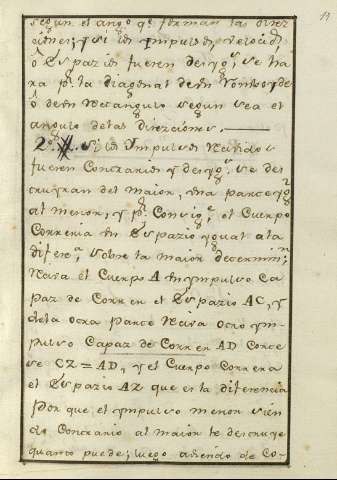 11
segun el angº qe forman las direz
ciones; y si los Ympulsos, velocids,
ô Espazios fueren desygs, se ha
ra pr la diagonal de un Romboyde
ô de un Rectangulo segun sea el
angulo de las Direzciones.
2º Si los Ympulsos Recividos
fueren Contrarios y desygs, se des
truyran del maior, una parte ygl
al menor, y pr Consige, el Cuerpo
Correria un Espazio ygual a la
difera, sobre la maior determinn
Reciva el Cuerpo A un ympulso Ca
paz de Correr en el Espazio AC, y
de la otra parte Reciva otro ym-
pulso Capaz de Correr AD Corte
se CZ = AD, y el Cuerpo Correra
el Espazio AZ que es la diferencia
Por que el ympulso menor sien
do Contrario al maior le destruye
quanto puede; luego